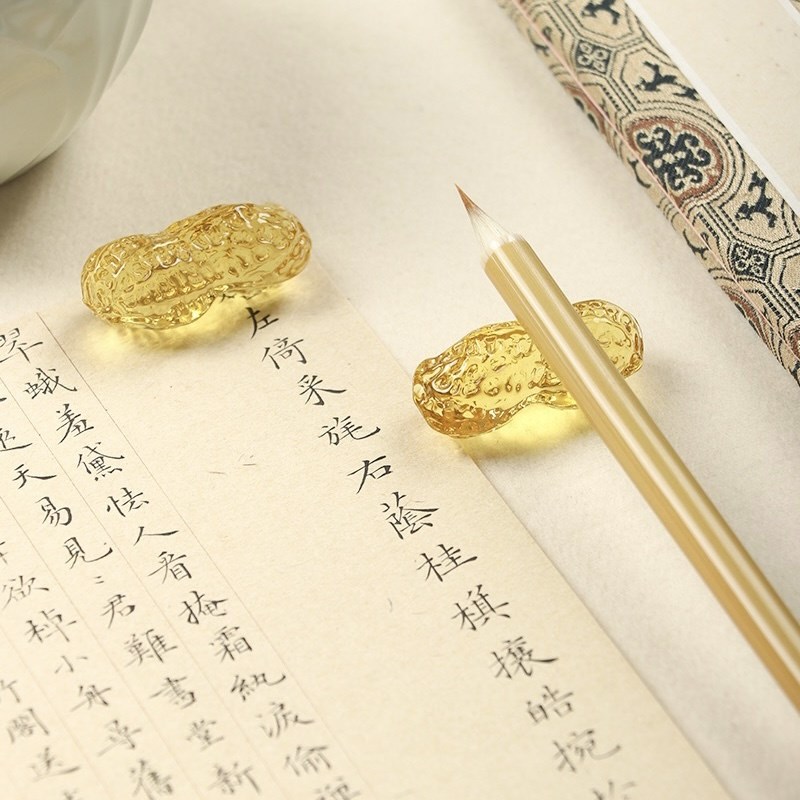 左倚采旄右蔭桂旗攘皓腕
翠蛾羞黛怯人看掩霜紈淚偷彈
遠天易見〻君難畫堂新
欲棹小舟尋舊
閣送